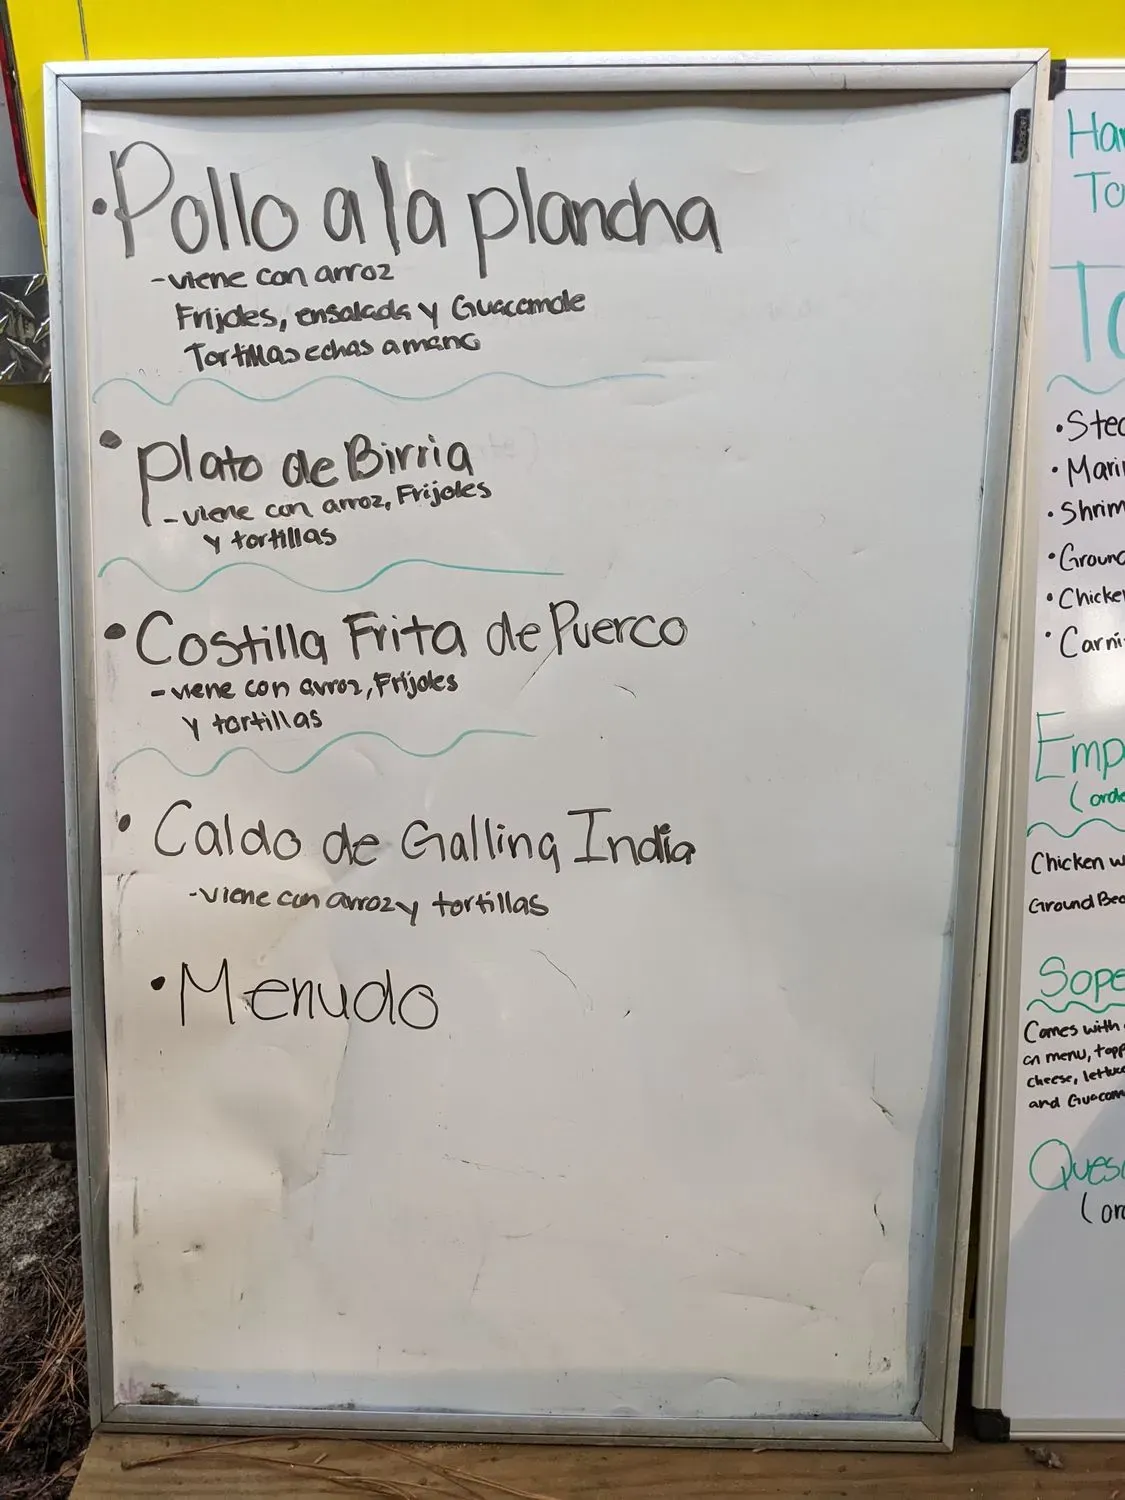 • Pollo a la plancha
- viene con arroz
Frijoles, ensalada y Guacamole
Tortillas echas a mano
• Plato de Birria
- viene con arroz, Frijoles
y tortillas
• Costilla Frita de Puerco
- viene con arroz, Frijoles
y tortillas
• Caldo de Gallina India
- viene con arroz y tortillas
• Menudo
• Shrim
• Ground
• Chicke
• Carni
Emp
Chicken w
Sope
Comes with
on menu, topp
cheese, lettuce
and Guacam
Ques